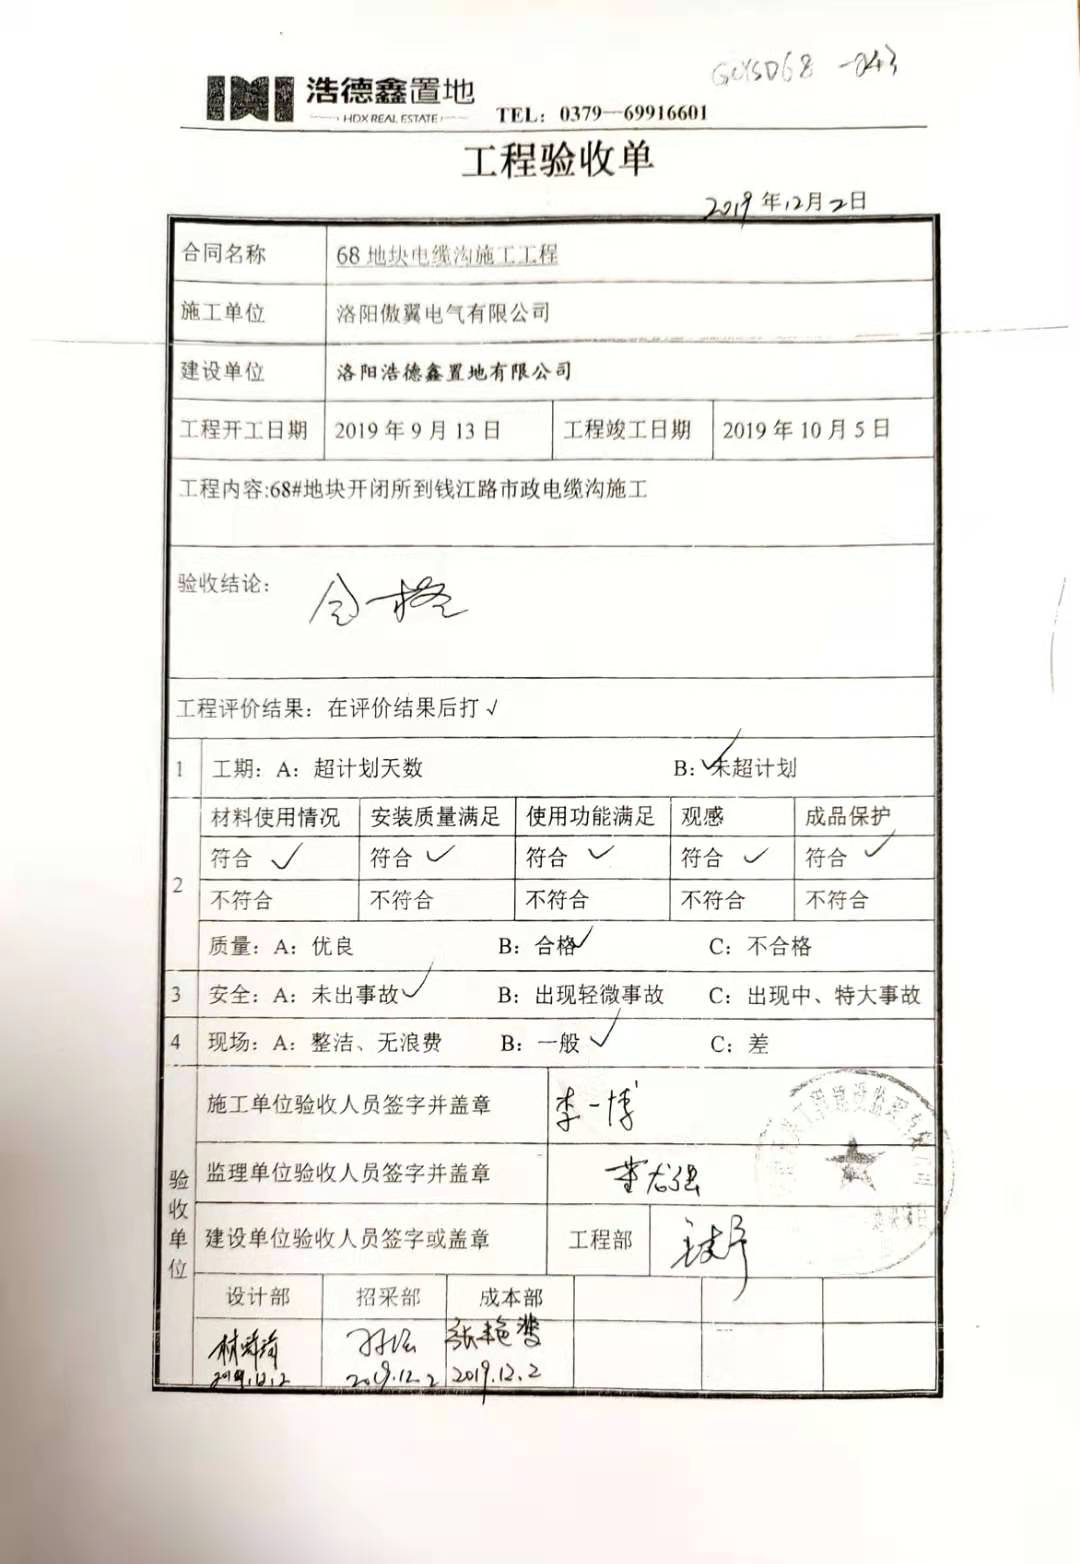 GCYSD68-043
浩德鑫置地
HDX REAL ESTATE
TEL：0379—69916601
工程验收单
2019年12月2日
合同名称 68 地块电缆沟施工工程
施工单位 洛阳傲翼电气有限公司
建设单位 洛阳浩德鑫置地有限公司
工程开工日期 2019 年 9 月 13 日 工程竣工日期 2019 年 10 月 5 日
工程内容:68#地块开闭所到钱江路市政电缆沟施工
验收结论： 合格
工程评价结果：在评价结果后打 √
1 工期：A：超计划天数 B：√未超计划
材料使用情况 安装质量满足 使用功能满足 观感 成品保护
符合 √ 符合 √ 符合 √ 符合 √ 符合 √
2
不符合 不符合 不符合 不符合 不符合
质量：A：优良 B：合格√ C：不合格
3 安全：A：未出事故√ B：出现轻微事故 C：出现中、特大事故
4 现场：A：整洁、无浪费 B：一般 √ C：差
验收单位
施工单位验收人员签字并盖章 李一博
监理单位验收人员签字并盖章
建设单位验收人员签字或盖章 工程部
设计部 招采部 成本部
张艳
2019.12.2 2019.12.2 2019.12.2